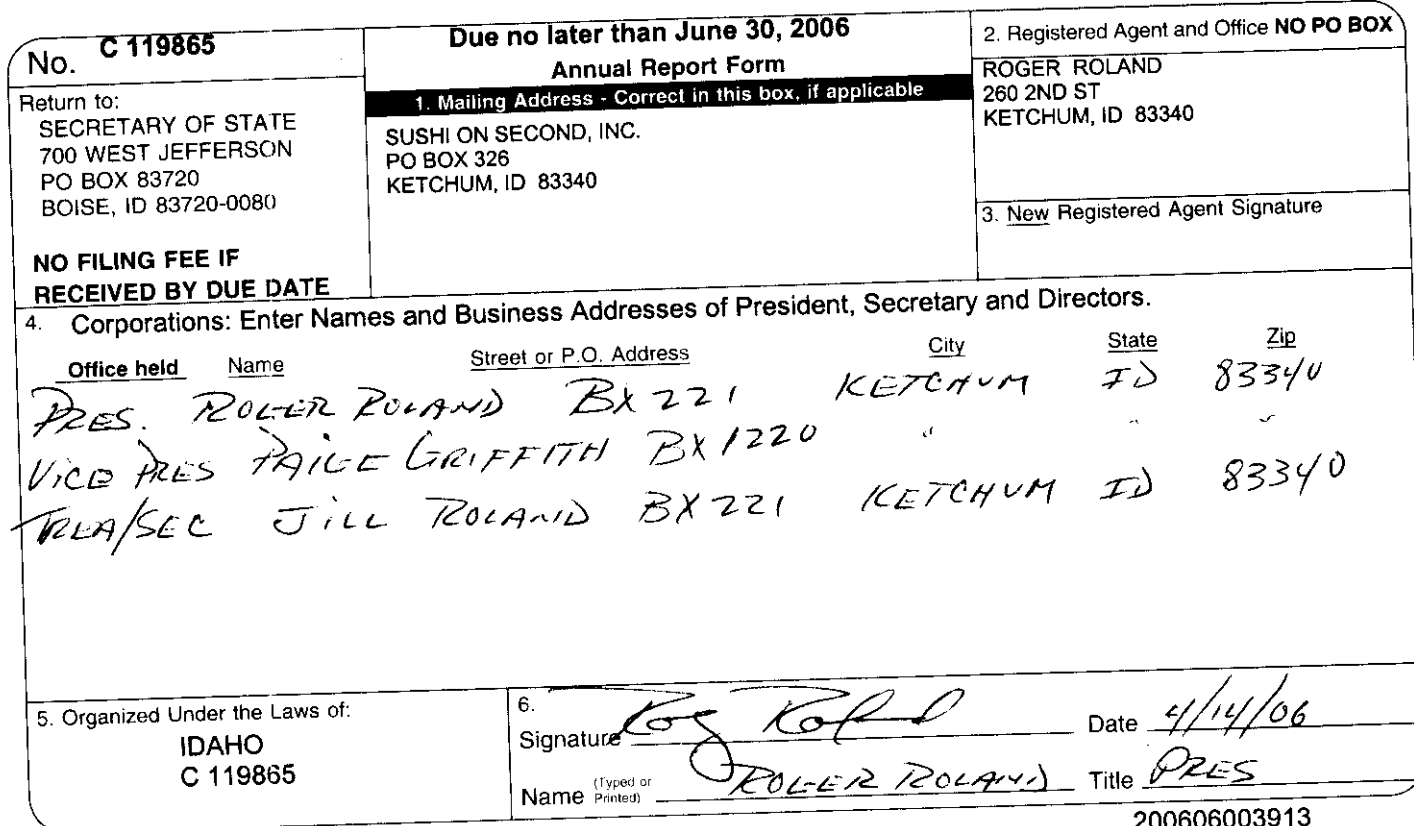 No. C 119865
Return to:
SECRETARY OF STATE
700 WEST JEFFERSON
PO BOX 83720
BOISE, ID 83720-0080
NO FILING FEE IF
RECEIVED BY DUE DATE
Due no later than June 30, 2006
Annual Report Form
1. Mailing Address - Correct in this box, if applicable
SUSHI ON SECOND, INC.
PO BOX 326
KETCHUM, ID 83340
2. Registered Agent and Office NO PO BOX
ROGER ROLAND
260 2ND ST
KETCHUM, ID 83340
3. New Registered Agent Signature
4. Corporations: Enter Names and Business Addresses of President, Secretary and Directors.
Office held Name Street or P.O. Address City State Zip
PRES. ROGER ROLAND BX 221 KETCHUM ID 83340
VICE PRES PAIGE GRIFFITH BX 1220 " " "
TREA/SEC JILL ROLAND BX 221 KETCHUM ID 83340
5. Organized Under the Laws of:
IDAHO
C 119865
6.
Signature Roger Roland Date 4/14/06
Name (Typed or Printed) ROGER ROLAND Title PRES
200606003913